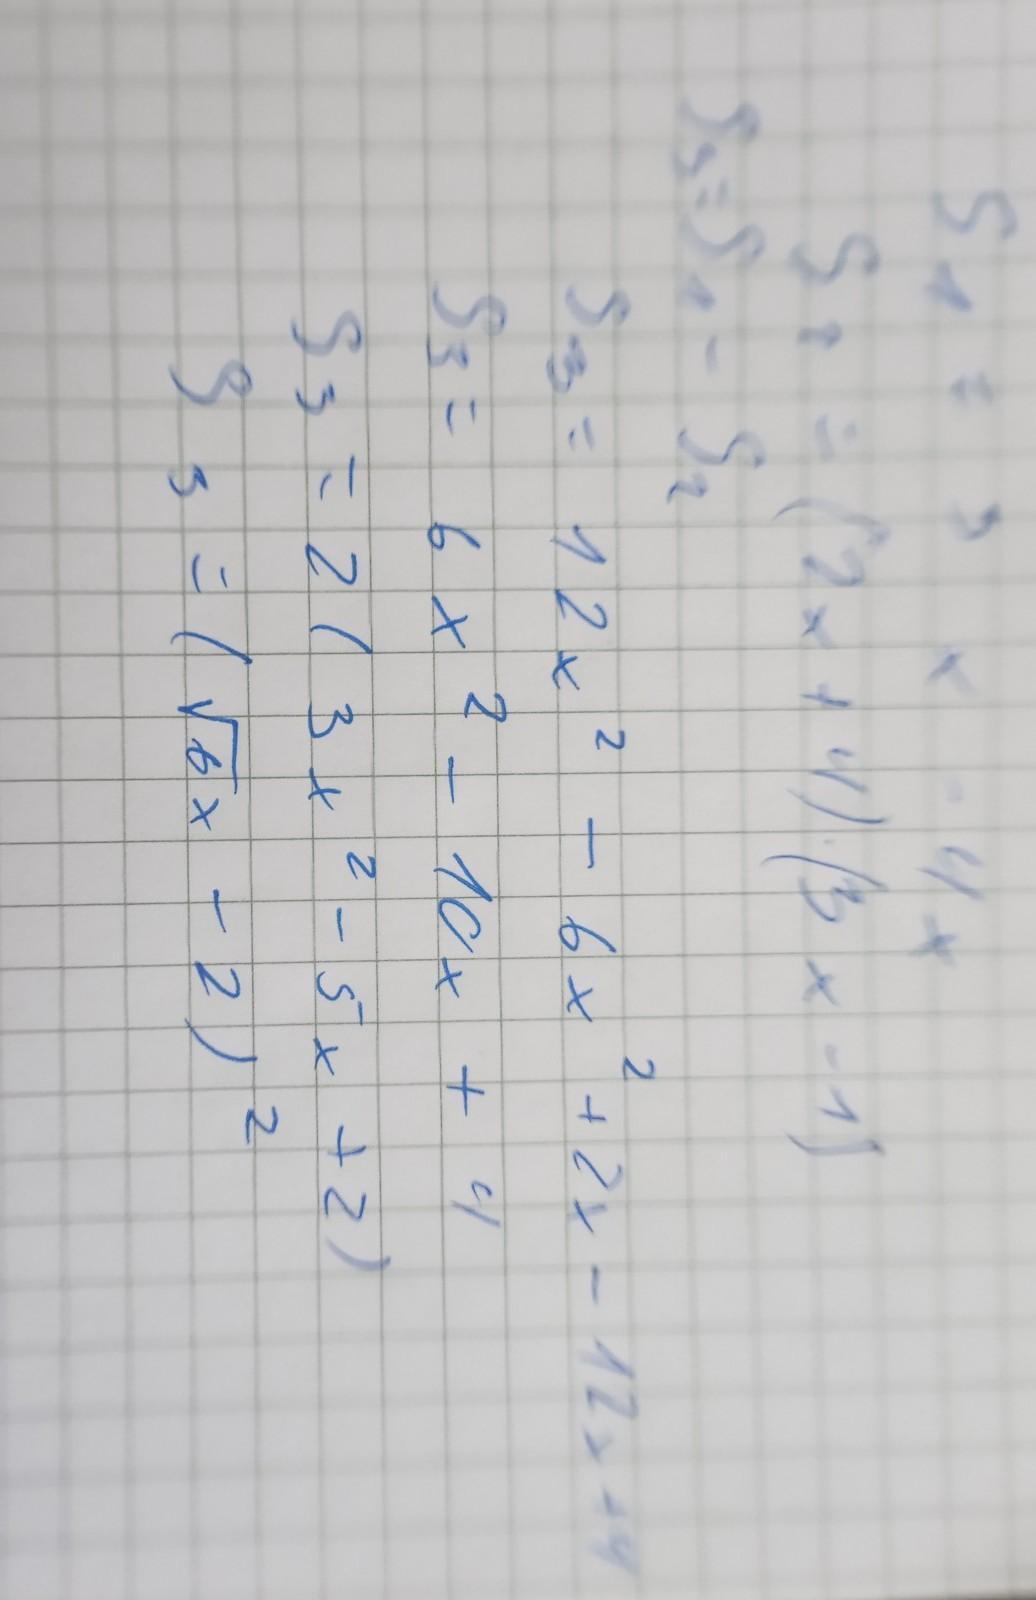 S1 = 3x - 4x
S2 = (2x + 4) · (3x - 1)
S3 = S1 - S2
S3 = 12x² - 6x² + 2x - 12x + 4
S3 = 6x² - 10x + 4
S3 = 2(3x² - 5x + 2)
S3 = (√6x - 2)²